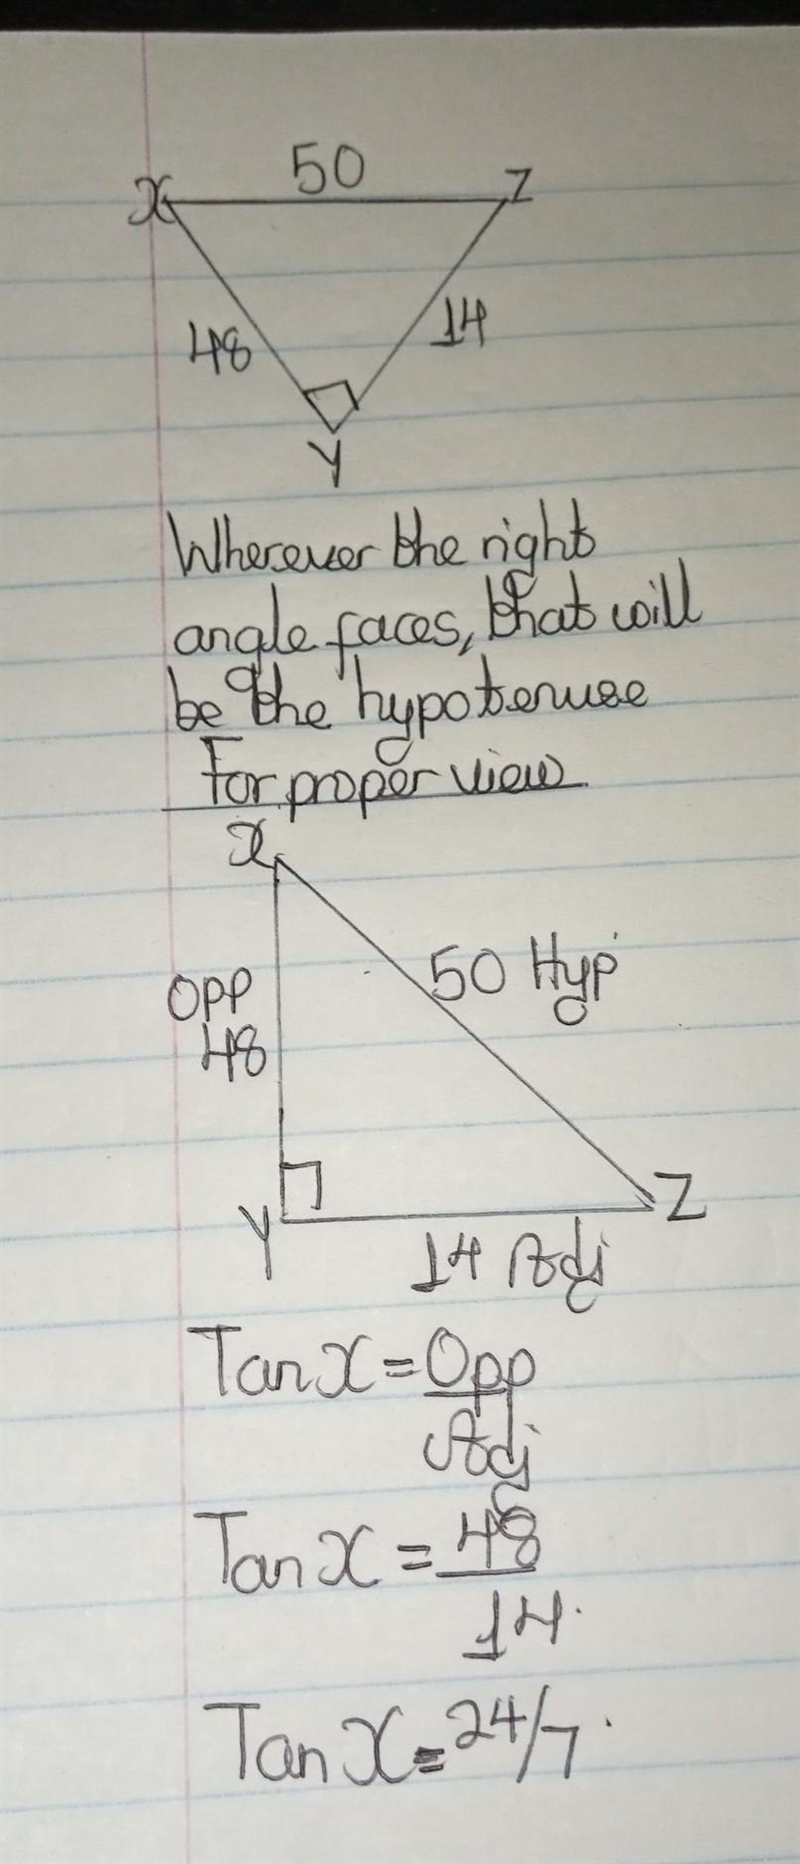 50
X Z
48 14
Y
Wherever the right
angle faces, that will
be the hypotenuse
For proper view
X
Opp
48
50 Hyp
Y Z
14 Adj
Tan X = Opp
Adj
Tan X = 48
14.
Tan X = 24/7.